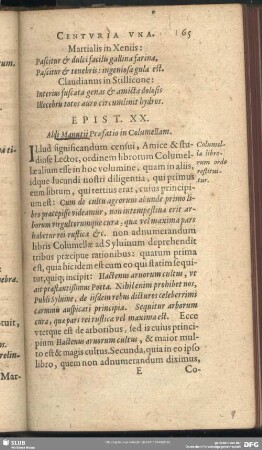 CENTVRIA VNA. 65
Martialis in Xeniis:
Pascitur & dulci facilis gallina farina,
Pascitur & tenebris: ingeniosa gula est.
Claudianus in Stillicone:
Interius fuscata genas & amicta dolosis
Illecebris totos auro circumlinit hydros.
EPIST. XX.
Aldi Manutij Præfatio in Columellam.
Illud significandum censui, Amice & studiose
Lector, ordinem librorum Columellæ
alium esse in hoc volumine, quam in aliis,
idque facundi nostri diligentia, qui primus
eum librum, qui tertius erat, cuius principium
est: Cum de cultu agrorum abunde primo libro
præcepisse videamur, non intempestina erit arborum
virgultorumque cura, quæ vel maxima pars
habetur rei rusticæ &c. non adnumerandum
libris Columellæ ad Syluinum deprehendit
tribus præcipue rationibus: quarum prima
est, quia hic idem est cum eo qui statim sequitur,
quiq; incipit: Hactenus aruorum cultus, vt
ait præstantissimus Poeta. Nihil enim prohibet nos,
Publi Syluine, de iisdem rebus dicturos celeberrimi
carminis auspicari principia. Sequitur arborum
cura, quæ pars rei rusticæ vel maxima est. Ecce
vterque est de arboribus, sed is cuius principium
Hactenus aruorum cultus, & maior multo
est & magis cultus. Secunda, quia in eo ipso
libro, quem non adnumerandum diximus,
E Co-
Columellæ
librorum
ordo
restituitur.
Mar-
SLUB
DFG